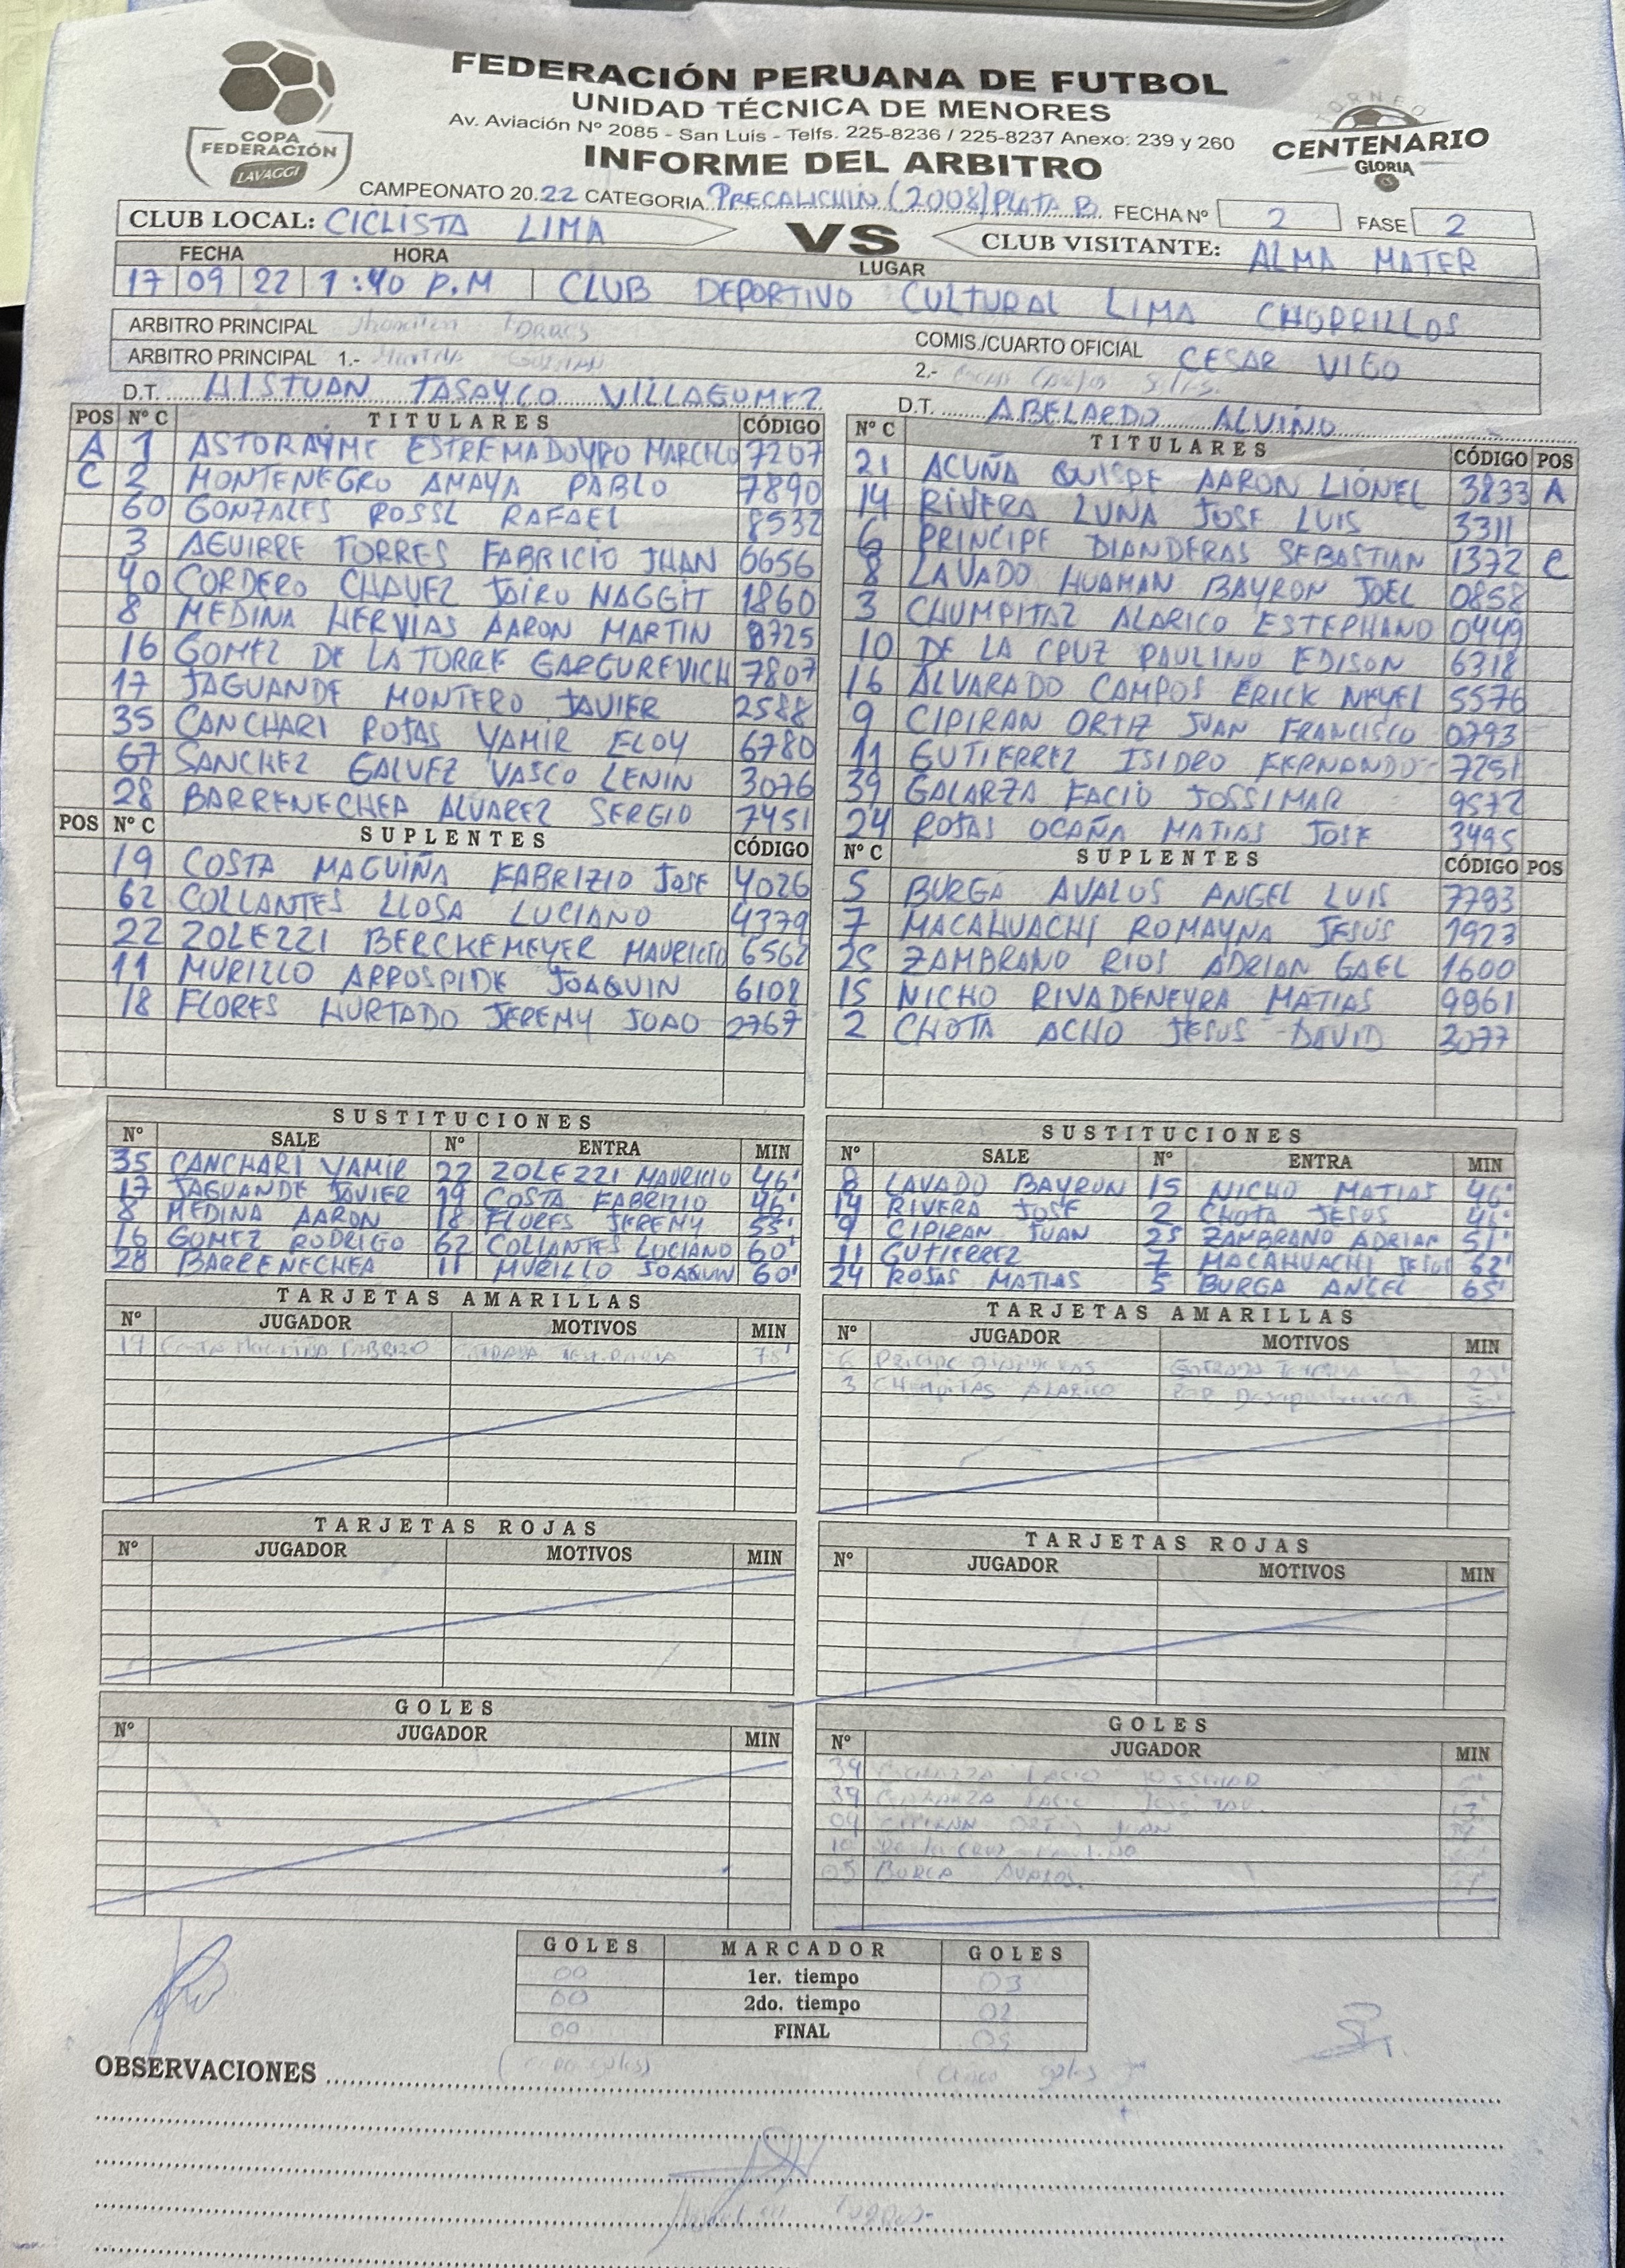 FEDERACIÓN PERUANA DE FUTBOL
UNIDAD TÉCNICA DE MENORES
Av. Aviación Nº 2085 - San Luis - Telfs. 225-8236 / 225-8237 Anexo: 239 y 260
INFORME DEL ARBITRO
COPA FEDERACIÓN LAVAGGI
TORNEO CENTENARIO GLORIA
CAMPEONATO 20.22 CATEGORIA PRECALICHIN (2008) PLATA B. FECHA Nº 2 FASE 2
CLUB LOCAL: CICLISTA LIMA VS CLUB VISITANTE: ALMA MATER
FECHA HORA LUGAR
17 09 22 1:40 P.M CLUB DEPORTIVO CULTURAL LIMA CHORRILLOS
ARBITRO PRINCIPAL COMIS./CUARTO OFICIAL CESAR VIGO
ARBITRO PRINCIPAL 1.- 2.-
D.T. TASAYCO VILLAGOMEZ D.T. ABELARDO ALVINO
POS Nº C TITULARES CÓDIGO
A 1 ASTORAYME ESTREMADOYRO MARCELO 7207
C 2 MONTENEGRO AMAYA PABLO 7890
60 GONZALES ROSSL RAFAEL 8532
3 AGUIRRE TORRES FABRICIO JHAN 6656
40 CORDERO CHAVEZ JAIRO NAGGIT 1860
8 MEDINA HERVIAS AARON MARTIN 8725
16 GOMEZ DE LA TORRE GARGUREVICH 7807
17 JAGUANDE MONTERO JAVIER 2588
35 CANCHARI ROJAS YAMIR ELOY 6780
67 SANCHEZ GALVEZ VASCO LENIN 3076
28 BARRENECHEA ALVAREZ SERGIO 7451
POS Nº C SUPLENTES CÓDIGO
19 COSTA MAGUIÑA FABRIZIO JOSE 4026
62 COLLANTES LLOSA LUCIANO 4379
22 ZOLEZZI BERCKEMEYER MAURICIO 6562
11 MURILLO ARROSPIDE JOAQUIN 6108
18 FLORES HURTADO JEREMY JOAO 2767
Nº C TITULARES CÓDIGO POS
21 ACUÑA QUISPE AARON LIONEL 3833 A
14 RIVERA LUNA JOSE LUIS 3311
6 PRINCIPE DIANDERAS SEBASTIAN 1372 C
8 LAVADO HUAMAN BAYRON JOEL 0858
3 CHUMPITAZ ALARICO ESTEPHANO 0449
10 DE LA CRUZ PAULINO EDISON 6318
16 ALVARADO CAMPOS ERICK NEYEL 5576
9 CIPIRAN ORTIZ JUAN FRANCISCO 0793
11 GUTIERREZ ISIDRO FERNANDO 7251
39 GALARZA FACIO JOSSIMAR 9572
24 ROJAS OCAÑA MATIAS JOSE 3495
Nº C SUPLENTES CÓDIGO POS
5 BURGA AVALOS ANGEL LUIS 7793
7 MACAHUACHI ROMAYNA JESUS 1923
25 ZAMBRANO RIOS ADRIAN GAEL 1600
15 NICHO RIVADENEYRA MATIAS 9861
2 CHOTA ACHO JESUS DAVID 3077
SUSTITUCIONES
Nº SALE Nº ENTRA MIN
35 CANCHARI YAMIR 22 ZOLEZZI MAURICIO 46'
17 JAGUANDE JAVIER 19 COSTA FABRIZIO 46'
8 MEDINA AARON 18 FLORES JEREMY 55'
16 GOMEZ RODRIGO 62 COLLANTES LUCIANO 60'
28 BARRENECHEA 11 MURILLO JOAQUIN 60'
SUSTITUCIONES
Nº SALE Nº ENTRA MIN
8 LAVADO BAYRON 15 NICHO MATIAS 46'
14 RIVERA JOSE 2 CHOTA JESUS 46'
9 CIPIRAN JUAN 25 ZAMBRANO ADRIAN 51'
11 GUTIERREZ 7 MACAHUACHI JESUS 62'
24 ROJAS MATIAS 5 BURGA ANGEL 65'
TARJETAS AMARILLAS
Nº JUGADOR MOTIVOS MIN
COSTA MAGUIÑA FABRIZIO
TARJETAS AMARILLAS
Nº JUGADOR MOTIVOS MIN
6 PRINCIPE
3 CHUMPITAS ALARICO
TARJETAS ROJAS
Nº JUGADOR MOTIVOS MIN
TARJETAS ROJAS
Nº JUGADOR MOTIVOS MIN
GOLES
Nº JUGADOR MIN
GOLES
Nº JUGADOR MIN
39 GALARZA FACIO JOSSIMAR
39 GALARZA FACIO
09 CIPIRAN ORTIZ JUAN
10 De la CRUZ
05 BURGA AVALOS.
GOLES MARCADOR GOLES
00 1er. tiempo 03
00 2do. tiempo 02
00 FINAL 05
(Cinco goles)
OBSERVACIONES